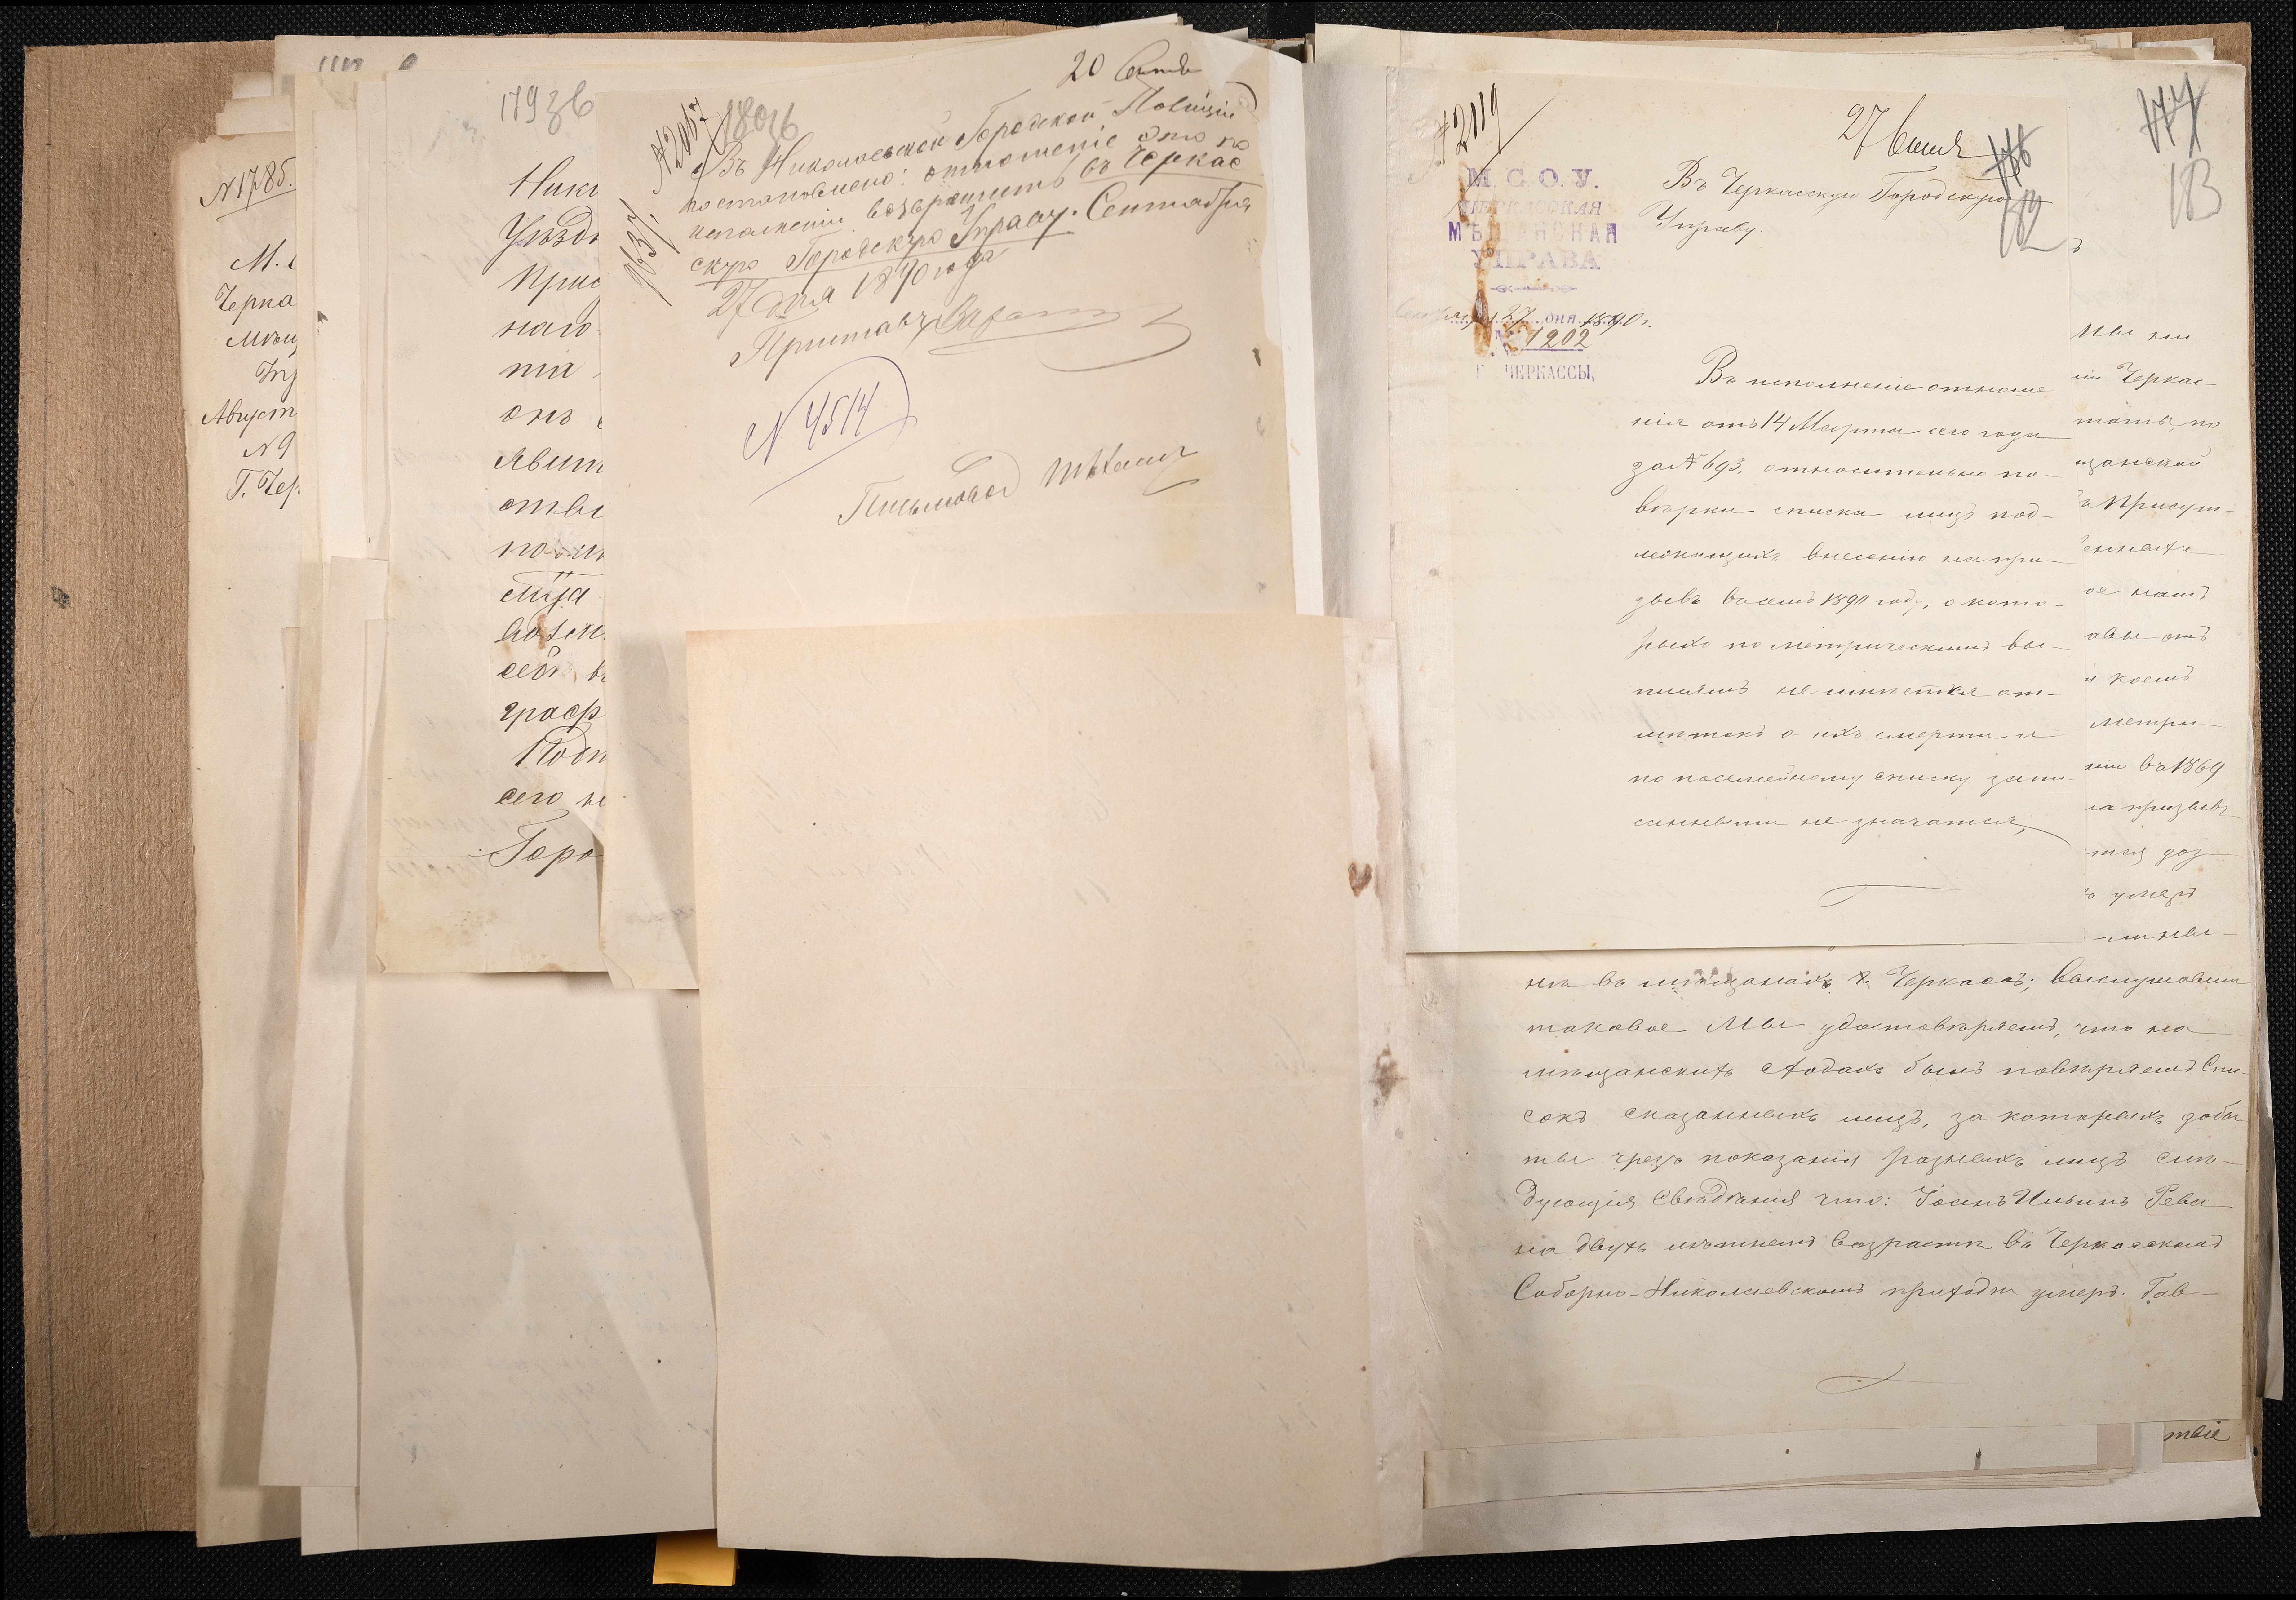 N 1785.
М.
Черка
Мѣщ
Август
N 9
Г. Чер.
179 зв
Нико
Уѣздн
Прис
наго
та
онъ
явит
отвѣ
сего не
Горо
180 зв
20 Сентя
№ 2067
Въ Николаевской Городской Полиціи
постановлено: отношеніе это по
исполненіи возвратить въ Черкас
скую Городскую Управу. Сентября
27 дня 1890 года
Приставъ
N 4514
Письмовод
№ 2119
27 Сентя
182
183
М. С. О. У.
ЧЕРКАССКАЯ
МѢЩАНСКАЯ
УПРАВА
Сентября 27 дня 1890 г.
№ 1202
Г. ЧЕРКАССЫ,
Въ Черкасскую Городскую
Управу.
Въ исполненіе отноше
нія отъ 14 Марта сего года
за № 693, относительно по-
вѣрки списка лицъ под-
лежащихъ внесенію на при-
зывъ въ семъ 1890 году, о кото-
рыхъ по метрическимъ вы-
писямъ не имѣется от-
мѣтокъ о ихъ смерти и
по посемейному списку запи-
санными не значатся,
іи Черкас-
тать, по
щанской
ъ Присут-
ое намъ
авы отъ
и коемъ
метри
ніи въ 1869
на призывъ
тся доз
ъ умеръ
на въ мѣщанахъ г. Черкасъ; выслушавши
таковое Мы удостовѣряемъ, что на
мѣщанскихъ сходахъ былъ повѣряемъ Спи-
сокъ сказанныхъ лицъ, за которыхъ добы
ты чрезъ показанія разныхъ лицъ слѣ-
дующія свѣдѣнія что: Іоанъ Ильинъ Рева
на двухъ лѣтнемъ возрастѣ въ Черкасскомъ
Соборно-Николаевскомъ приходѣ умеръ. Гав-
твіе